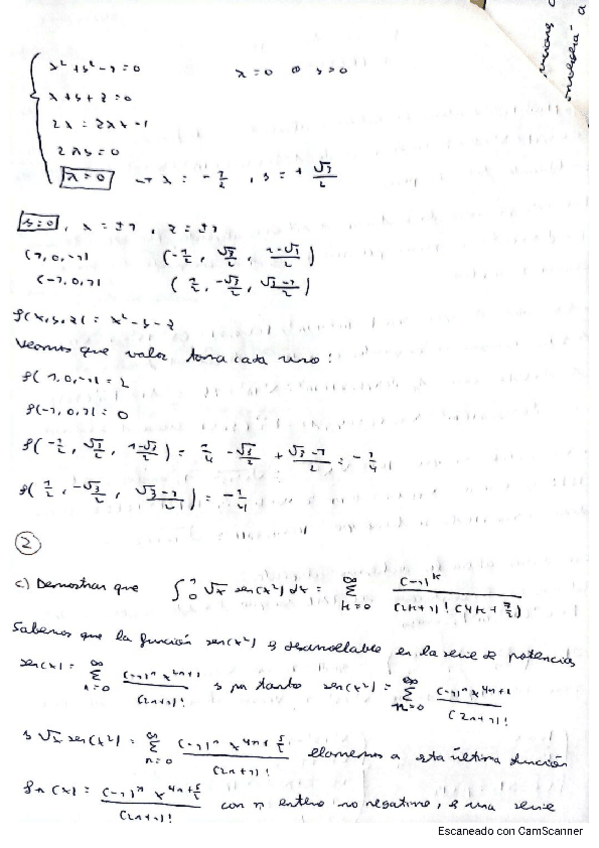 x² + y² - 1 = 0        x = 0 o y > 0
x + y + z = 0
2x = 2λx - 1
2λy = 0
λ = 0 → x = - 1/2 , y = + √3/2
y = 0 , x = ±1 , z = ±1
(1, 0, -1)        (-1/2, √3/2, (1-√3)/2)
(-1, 0, 1)        (1/2, -√3/2, (√3-1)/2)
f(x, y, z) = x² - y - z
Veamos que valor toma cada uno:
f(1, 0, -1) = 2
f(-1, 0, 1) = 0
f(-1/2, √3/2, (1-√3)/2) = 1/4 - √3/2 + (√3-1)/2 = - 1/4
f(1/2, -√3/2, (√3-1)/2) = - 1/4
2
c) Demostrar que ∫₀¹ √x sen(x²) dx = ∑_{k=0}^{∞} (-1)^k / ((2k+1)! (4k + 7/2))
Sabemos que la función sen(x²) es desarrollable en la serie de potencias
sen(x) = ∑_{n=0}^{∞} (-1)^n x^{2n+1} / (2n+1)! y por tanto sen(x²) = ∑_{n=0}^{∞} (-1)^n x^{4n+2} / (2n+1)!
y √x sen(x²) = ∑_{n=0}^{∞} (-1)^n x^{4n+5/2} / (2n+1)! llamemos a esta última función
fn(x) = (-1)^n x^{4n+5/2} / (2n+1)! con n entero no negativo, es una serie
Escaneado con CamScanner